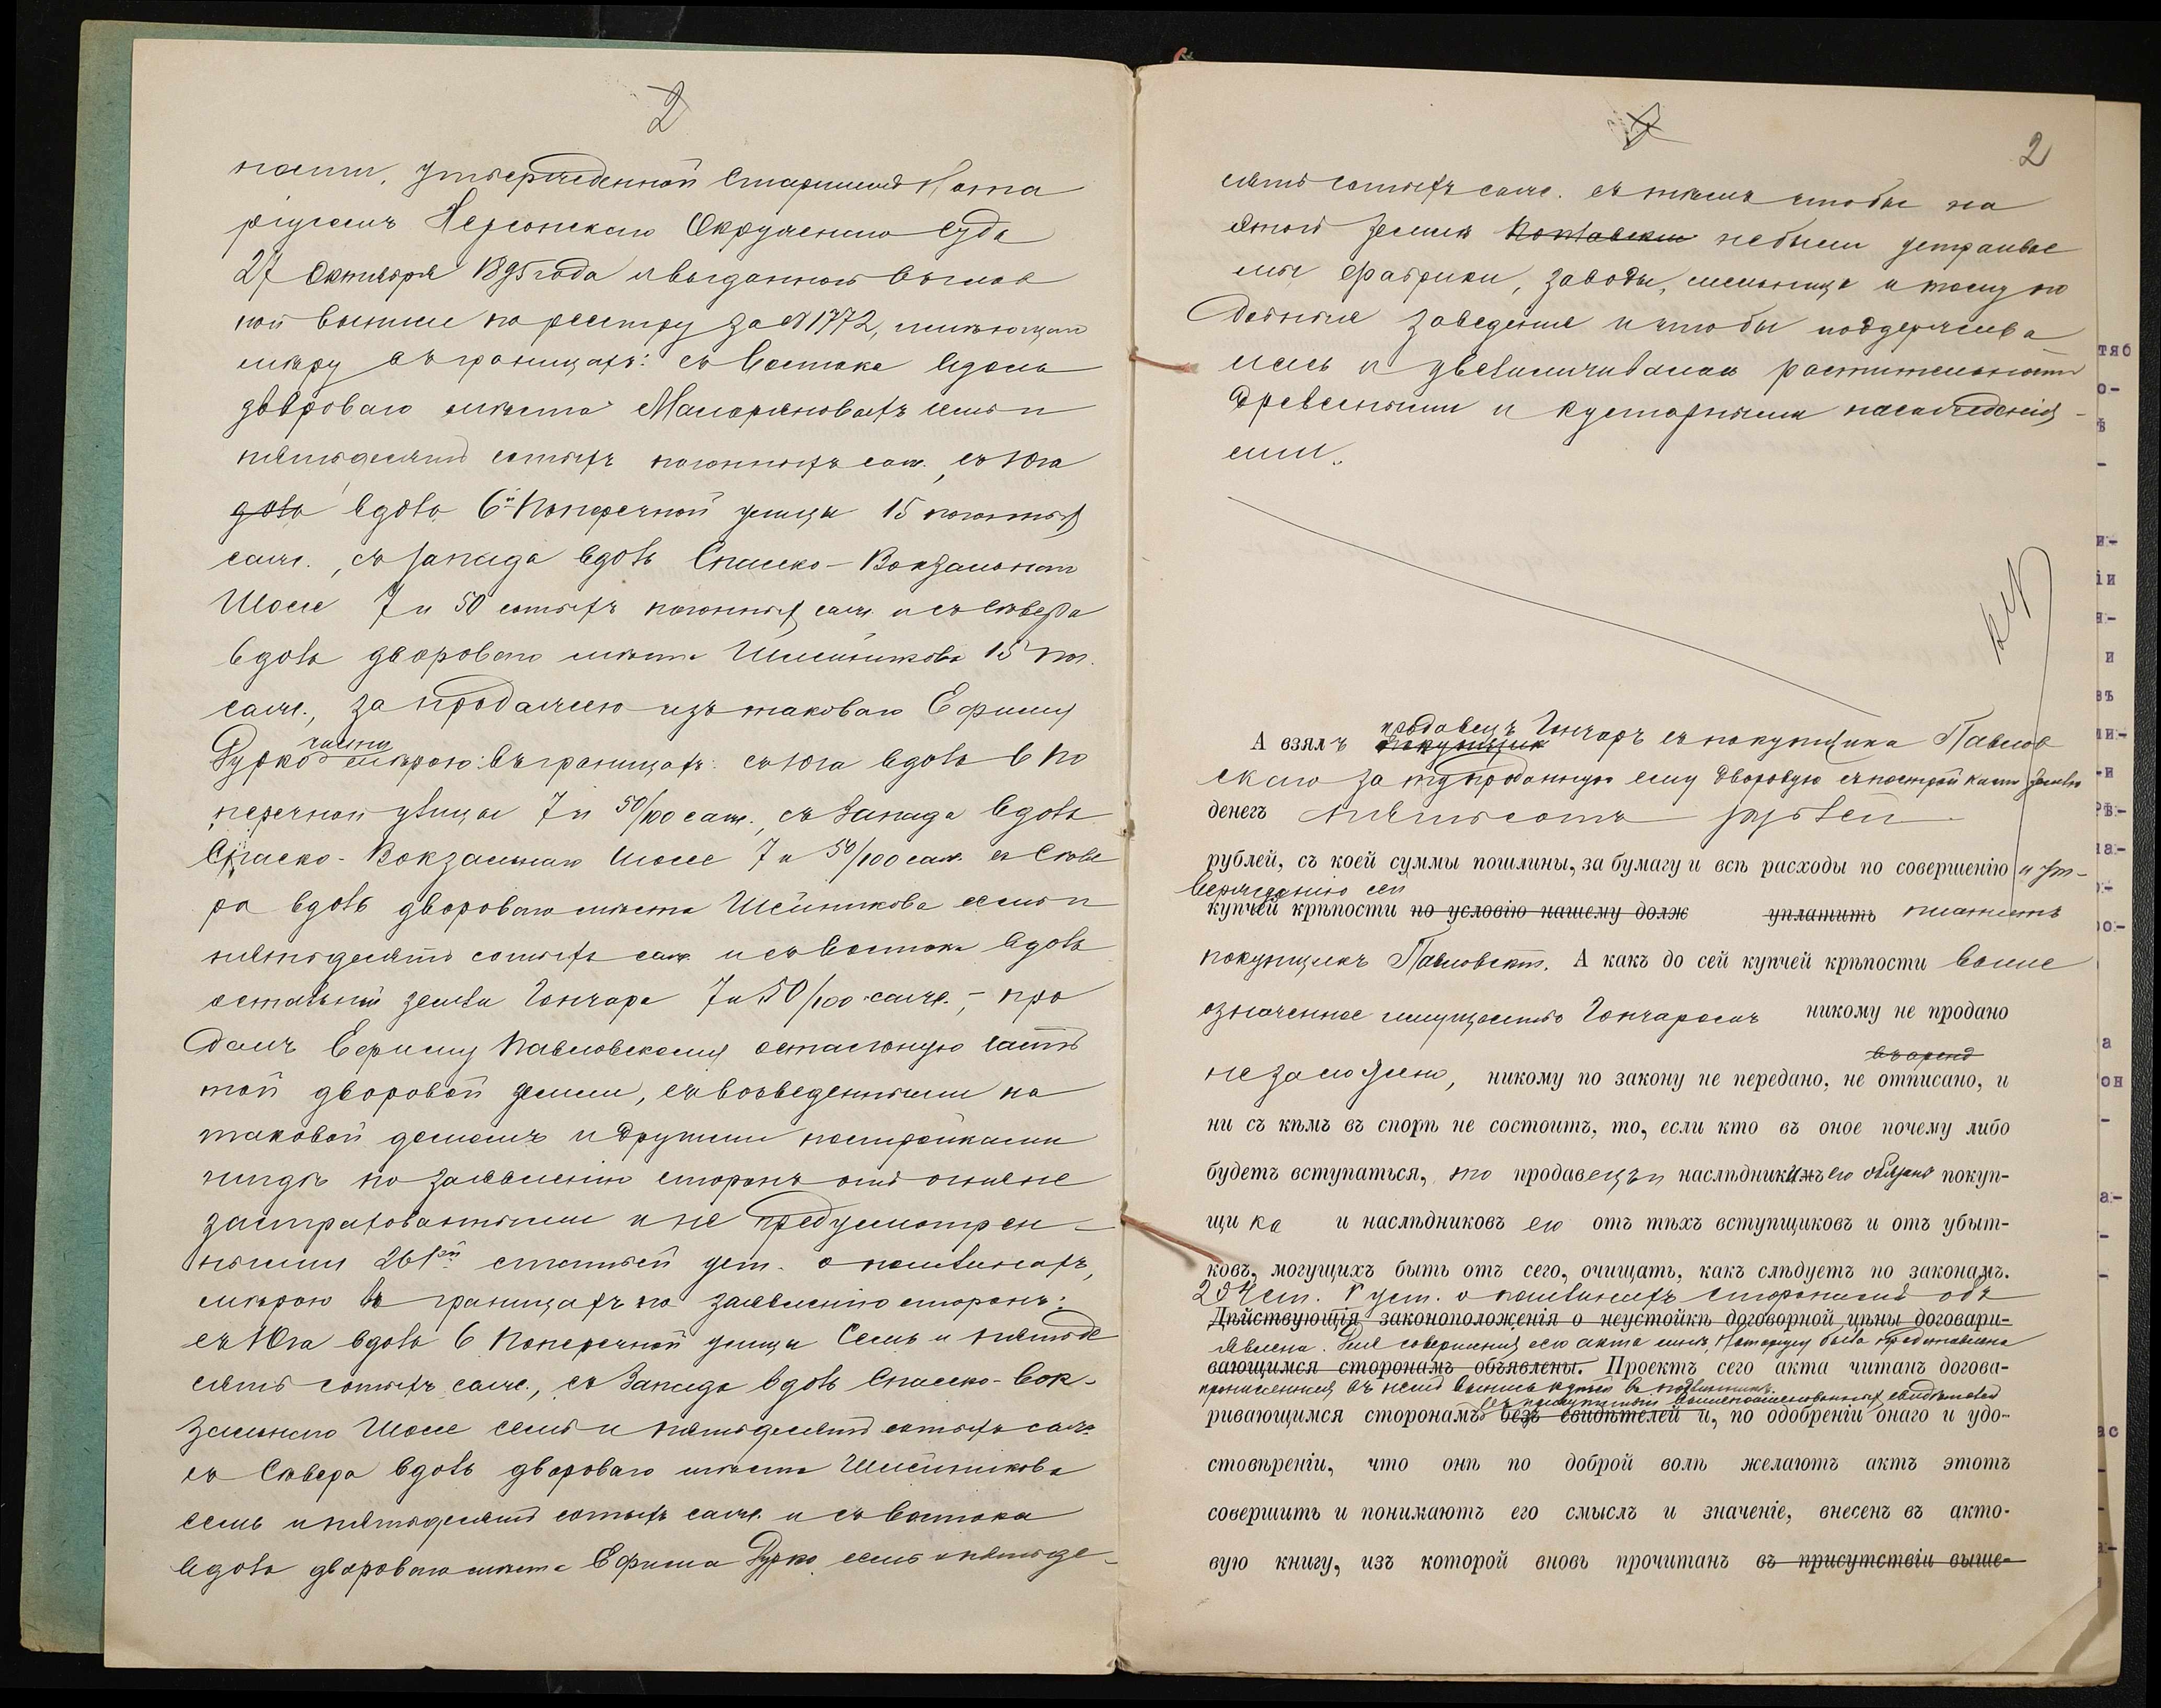 2
пости, утвержденной Старшимъ Нота
ріусомъ Херсонскаго Окружнаго Суда
27 Октября 1895 года и выданной въ глав
ной выписи по реестру за № 1772, имѣющаго
мѣру въ границахъ: съ Востока вдоль
двороваго мѣста семь и
пятьдесятъ сотыхъ погонныхъ саж., съ Юга
вдоль 6й Поперечной улицы 15 погонных
саж., съ Запада вдоль Спаско-Вокзальнаго
Шоссе 7 и 50 сотыхъ погонных саж. и съ Сѣвера
вдоль двороваго мѣста Шейникова 15 пог.
саж., за продажею изъ таковаго Ефиму
части
Гурко мѣрою въ границахъ: съ Юга вдоль 6 По
перечной улицы 7 и 50/100 саж., съ Запада вдоль
Спаско-Вокзальнаго Шоссе 7 и 50/100 саж. съ Сѣве
ра вдоль двороваго мѣста Шейникова семь и
пятьдесятъ сотыхъ саж. и съ Востока вдоль
остальной земли Гончара 7 и 50/100 саж., - про
далъ Павловскому остальную часть
той дворовой земли, съ возведенными на
таковой домомъ и другими постройками
нигдѣ по заявленію сторонъ отъ огня не
застрахованными и не предусмотрен-
ными 261ой статьей уст. о пошлинахъ,
мѣрою въ границахъ по заявленію сторонъ:
съ Юга вдоль 6 Поперечной улицы семь и пятьде
сятъ сотыхъ саж., съ Запада вдоль Спаско-Вок-
зальнаго Шоссе семь и пятьдесятъ сотыхъ саж.
съ Сѣвера вдоль двороваго мѣста Шейникова
семь и пятьдесятъ сотыхъ саж. и съ Востока
вдоль двороваго мѣста Ефима Гурко семь и пятьде-
2
сятъ сотыхъ саж. съ тѣмъ чтобы на
этой земли не были устраивае
мы фабрики, заводы, мельницы и тому по
добныя заведенія и чтобы поддержива
лась и увеличивалась растительность
древесными и кустарными насажденія-
ми.
продавецъ Гончаръ съ покупщика Павлов
А взялъ покупщик
скаго за ту проданную ему дворовую съ постройками землю
денегъ пятьсотъ рублей
рублей, съ коей суммы пошлины, за бумагу и всѣ расходы по совершенію и ут-
вержденію сей
купчей крѣпости по условію нашему долж уплатить платитъ
покупщикъ Павловскій. А какъ до сей купчей крѣпости выше
означенное имущество Гончаромъ никому не продано
въ аренд
не заложено, никому по закону не передано, не отписано, и
ни съ кѣмъ въ спорѣ не состоитъ, то, если кто въ оное почему либо
будетъ вступаться, то продавецъ и наслѣдники его обязаны покуп-
щика и наслѣдниковъ его отъ тѣхъ вступщиковъ и отъ убыт-
ковъ, могущихъ быть отъ сего, очищать, какъ слѣдуетъ по законамъ.
ст. V уст. о пошлинахъ сторонамъ объ
Дѣйствующія законоположенія о неустойкѣ договорной цѣны договари-
явлена. Для совершенія сего акта мнѣ, Нотаріусу была представлена
вающимся сторонамъ объявлены. Проектъ сего акта читанъ догова-
прописанная въ немъ выпись купчей въ подлинникѣ.
въ присутствіи вышепоименованныхъ свидѣтелей
ривающимся сторонамъ безъ свидѣтелей и, по одобреніи онаго и удо-
стовѣреніи, что онѣ по доброй волѣ желаютъ актъ этотъ
совершить и понимаютъ его смыслъ и значеніе, внесенъ въ акто-
вую книгу, изъ которой вновь прочитанъ въ присутствіи выше-